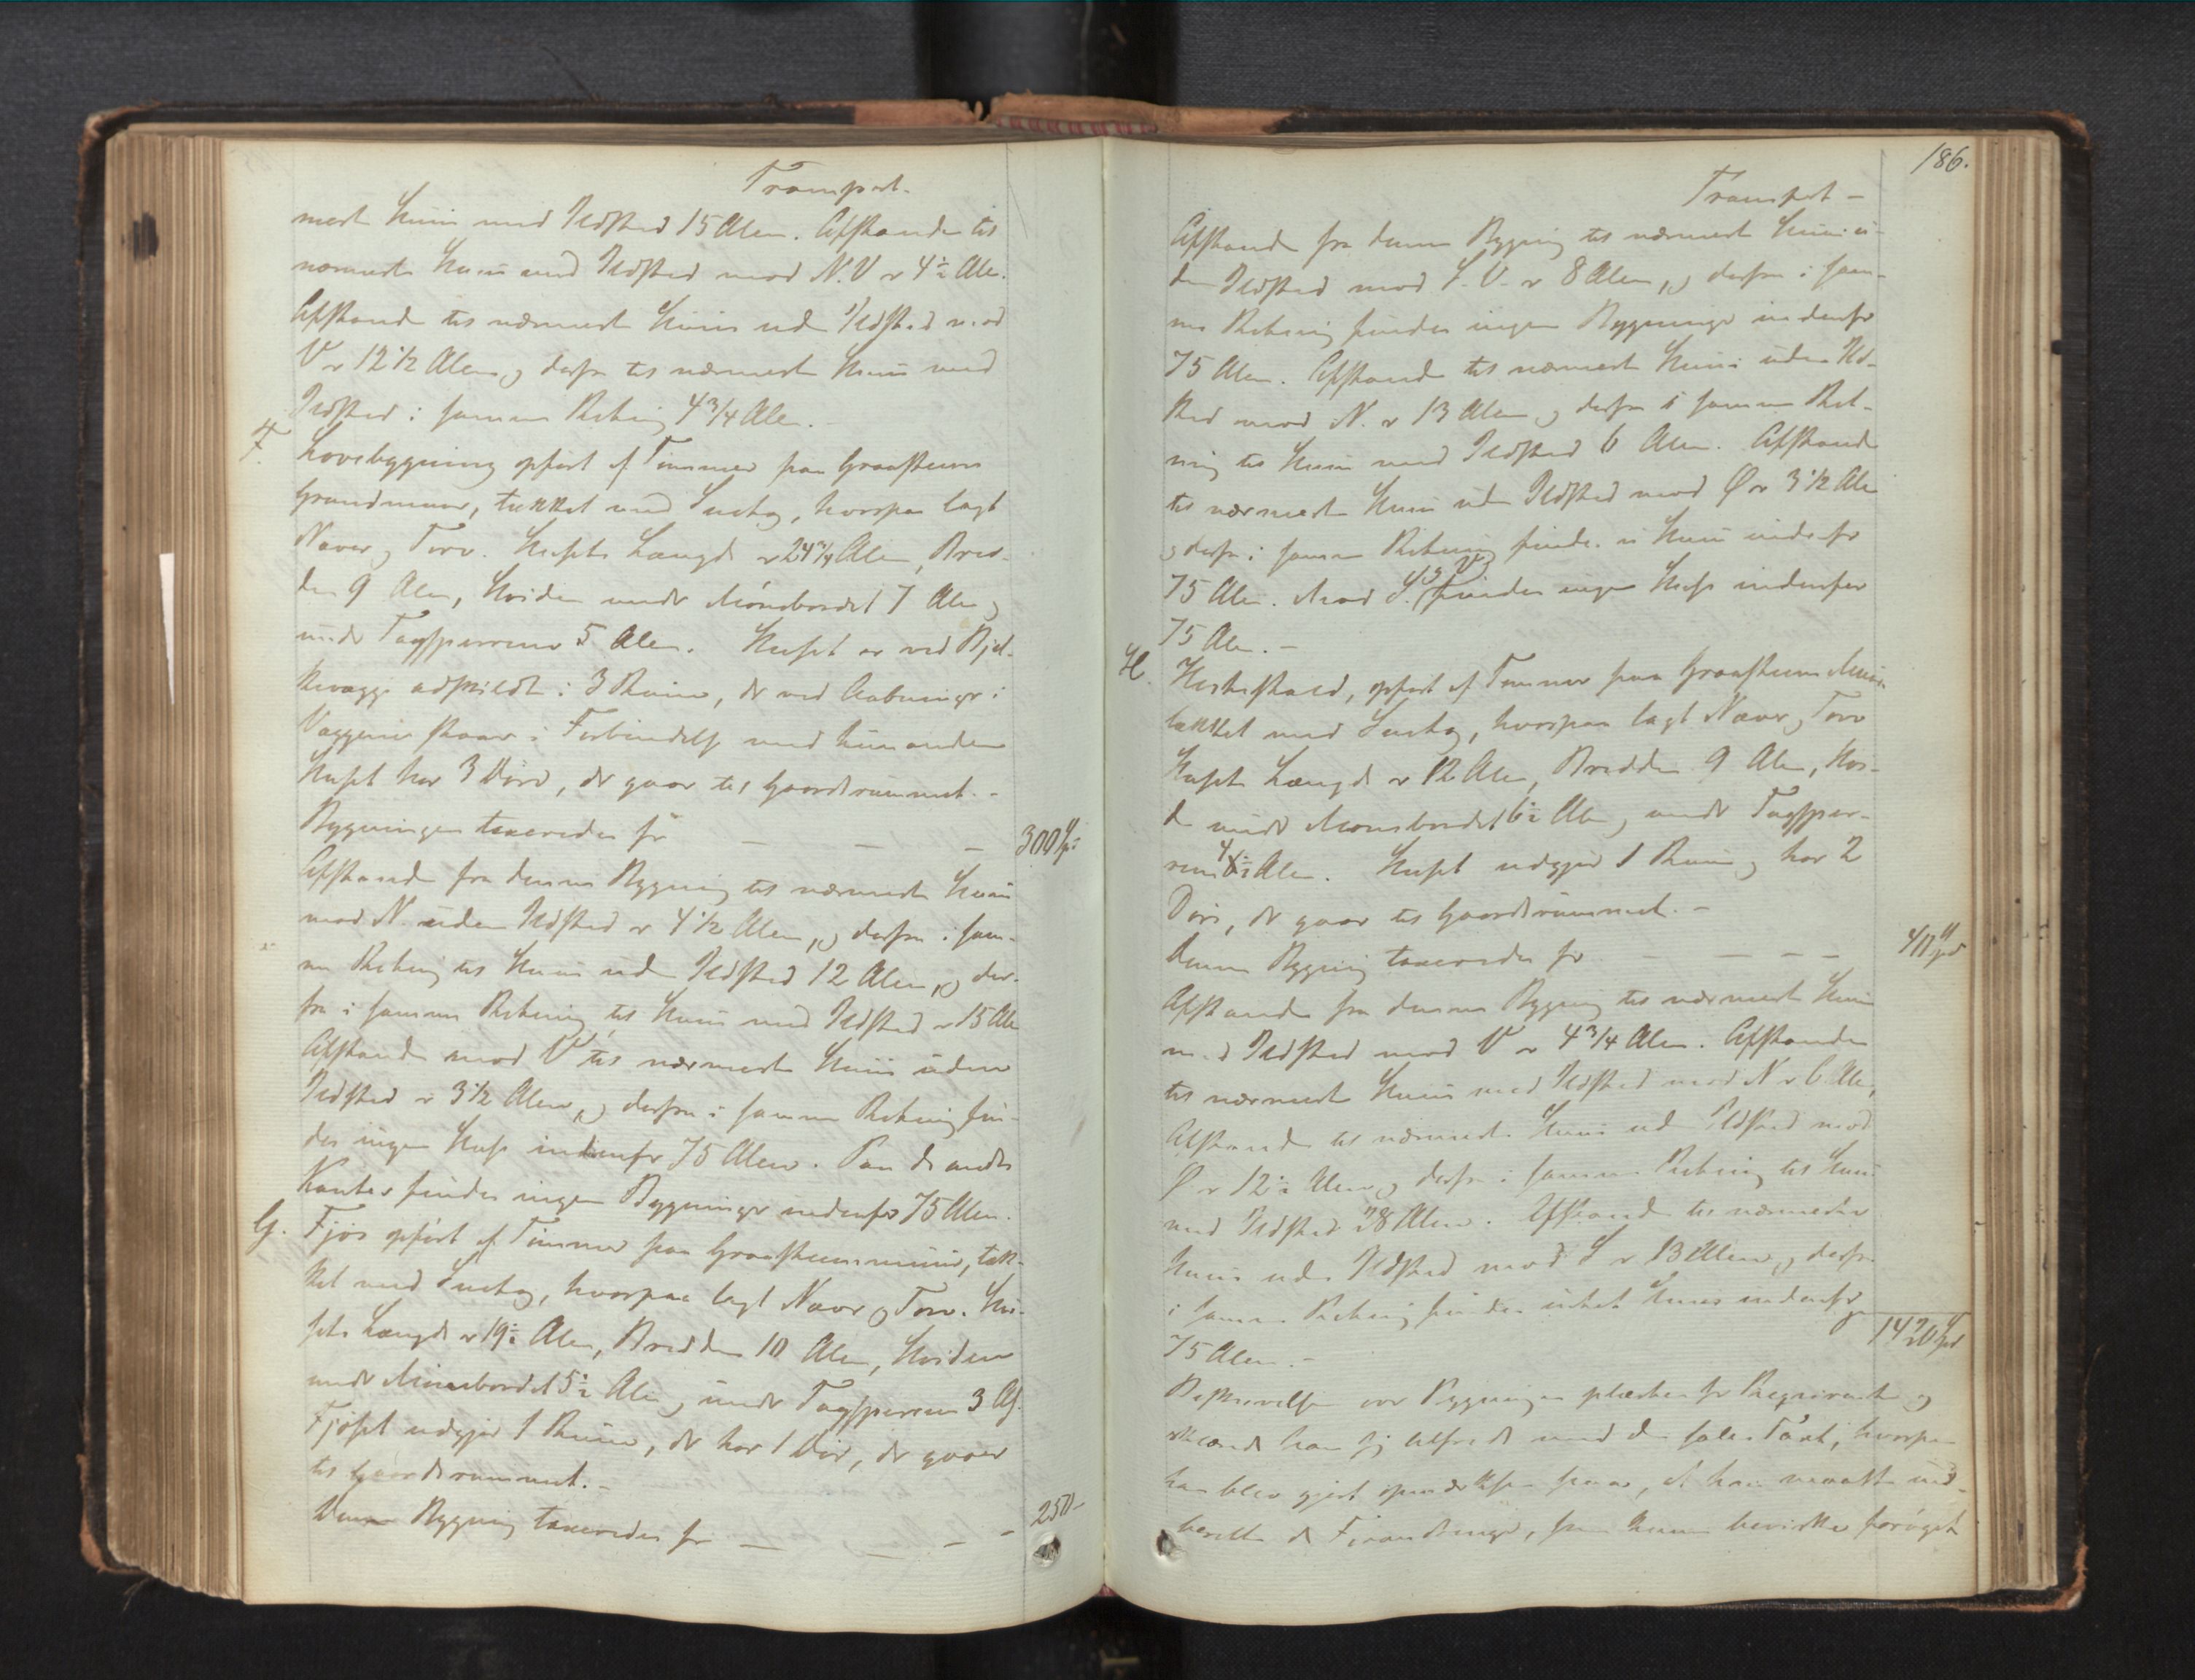 Transport.
mest Huus med Ildsted 15 Alen. Afstanden til
nærmeste Huus med Ildsted mod N.V er 4½ Alen.
Afstand til nærmeste Huus ud Ildsted mod
V er 12½ Alen og derfra til nærmeste Huus med
Ildsted i samme Retning 4¾ Alen.
F. Lovebygning opført af Tømmer paa Graasteens
Grundmuur, tækket med Sutag, hvorpaa lagt
Næver og Torv. Husets Længde er 24¾ Alen, Bred-
den 9 Alen, Høiden under Mønsbordet 7 Alen og
under Tagsperrene 5 Alen. Huset er ved Bjel-
kevægge adskildt i 3 Rum, der ved Aabninger i
Væggene staar i Forbindelse med hinanden
Huset har 3 Døre, der gaar til Gaardsrummet. -
Bygningen taxeredes for — — — 300 Spd:
Afstand fra denne Bygning til nærmeste Huus
mod N. uden Ildsted er 4½ Alen, og derfra i sam-
me Retning til Huus ud Ildsted 12 Alen, og der-
fra i samme Retning til Huus med Ildsted er 15 Al
Afstand mod V til nærmeste Huus uden
Ildsted er 3½ Alen, og derfra i samme Retning fin-
des ingen Huse indenfor 75 Alen. Paa de andre
Kanter findes ingen Bygninger indenfor 75 Alen.
G. Fjøs opført af Tømmer paa Graasteensmuur, tæk-
ket med Sutag, hvorpaa lagt Næver og Torv. Hu-
sets Længde er 19½ Alen, Bredden 10 Alen, Høiden
under Mønsbordet 5½ Alen og under Tagsperrene 3 Al.
Fjøset udgjør 1 Rum, der har 1 Dør, der gaaer
til Gaardsrummet. -
Denne Bygning taxeredes for — — — — 250 -
186.
Transport -
Afstand fra denne Bygning til nærmeste Huus u-
den Ildsted mod S.V. er 8 Alen, og derfra i sam-
me Retning findes ingen Bygninger indenfor
75 Alen. Afstand til nærmeste Huus uden Ild-
sted mod N. er 13 Alen og derfra i samme Ret-
ning til Huus med Ildsted 6 Alen. Afstand
til nærmeste Huus uden Ildsted mod Ø er 3½ Alen
og derfra i samme Retning findes ei Huus indenfor
75 Alen. Mod S. findes ingen Huse indenfor
75 Alen. -
H. Hestestald, opført af Tømmer paa Graasteens Muur
tækket med Sutag, hvorpaa lagt Næver og Torv
Husets Længde er 12 Alen, Bredden 9 Alen, Høi-
de under Mønsbordet 6½ Alen og under Tagsper-
rene 4½ Alen. Huset udgjør 1 Rum og har 2
Døre, der gaar til Gaardsrummet. -
Denne Bygning taxeredes for — — — — 40 Spd
Afstanden fra denne Bygning til nærmeste Huus
med Ildsted mod V er 4¾ Alen. Afstanden
til nærmeste Huus med Ildsted mod N er 6 Alen,
Afstand til nærmeste Huus ud Ildsted mod
Ø er 12½ Alen og derfra i samme Retning til Huus
med Ildsted 28 Alen. Afstand til nærmeste
Huus uden Ildsted mod S er 13 Alen, og derfra
i samme Retning findes intet Huus indenfor
1420 Spd
75 Alen. -
Beskrivelsen over Bygningen oplæstes for Requirenten og
erklærede han sig tilfreds med den satte Taxt, hvorpaa
han blev gjort opmærksom paa, at han maatte ind-
berette de Forandringer, som kunne bevirke forøget